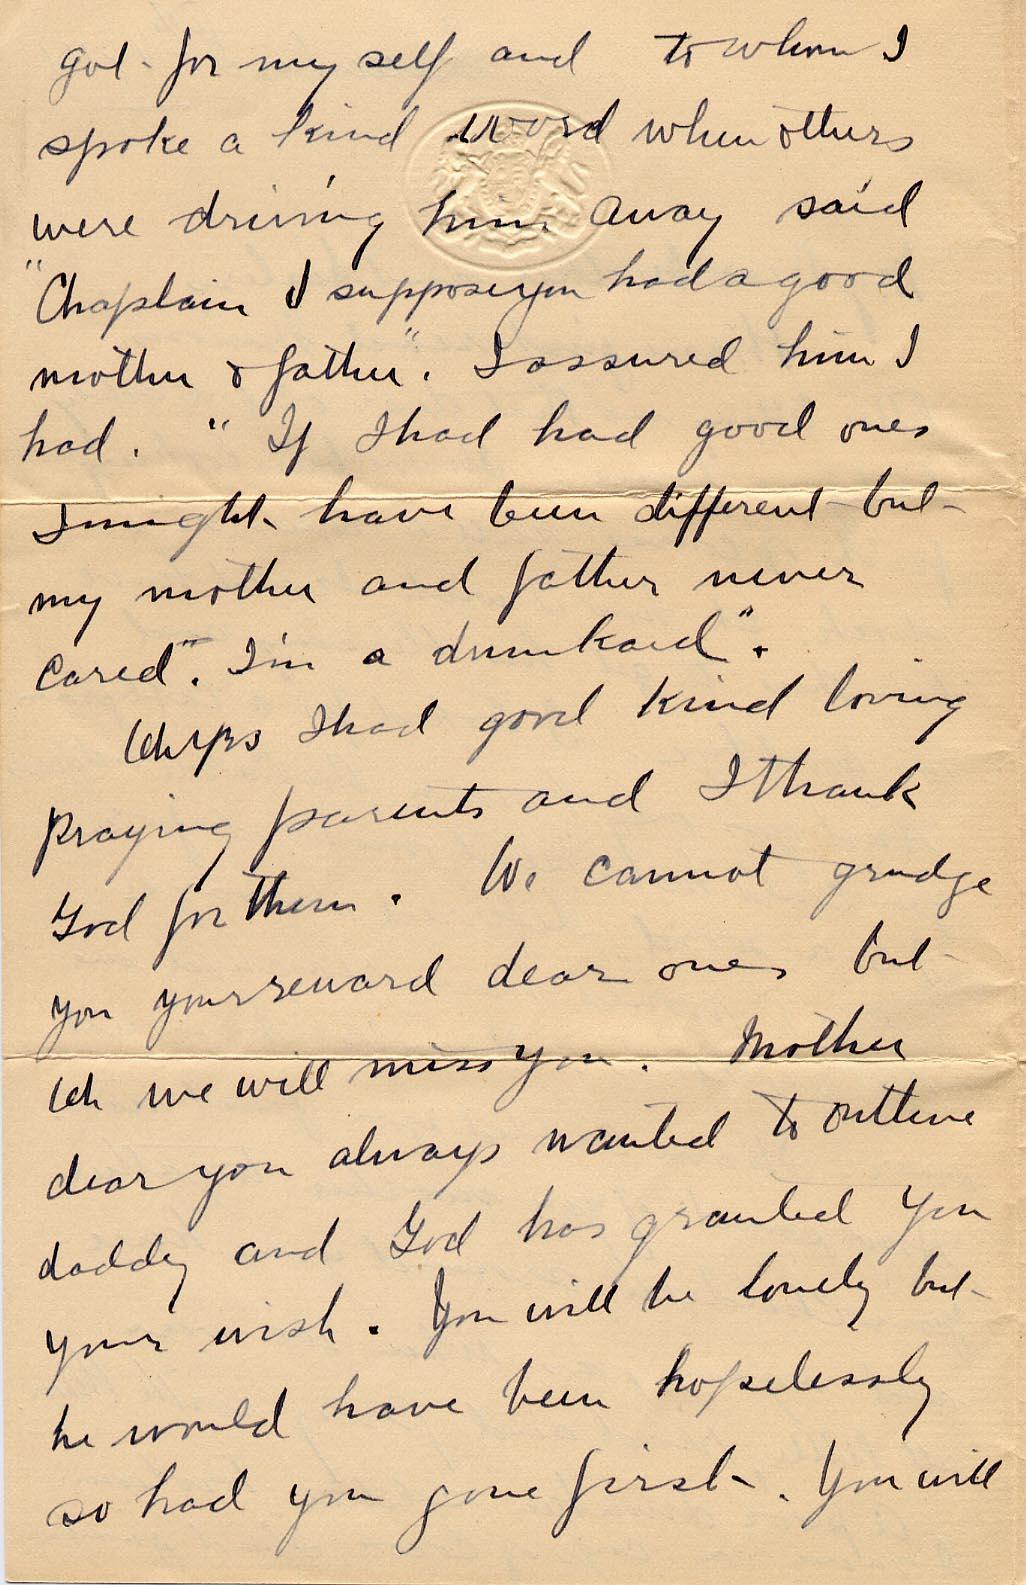 got for my self and to whom I
spoke a kind word when others
were driving him away said
"Chaplain I suppose you had a good
mother & father". I assured him I
had. "If I had had good ones
I might have been different but
my mother and father never
cared". I'm a drunkard".
Oh yes I had good kind loving
praying parents and I thank
God for them. We cannot grudge
you your reward dear ones but
Oh we will miss you. Mother
dear you always wanted to outlive
daddy and God has granted you
your wish. You will be lonely but
he would have been hopelessly
so had you gone first. You will